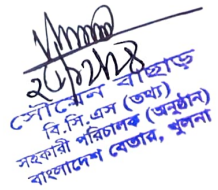 সৌমেন বাছাড়
বি.সি.এস (তথ্য)
সহকারী পরিচালক (অনুষ্ঠান)
বাংলাদেশ বেতার, খুলনা